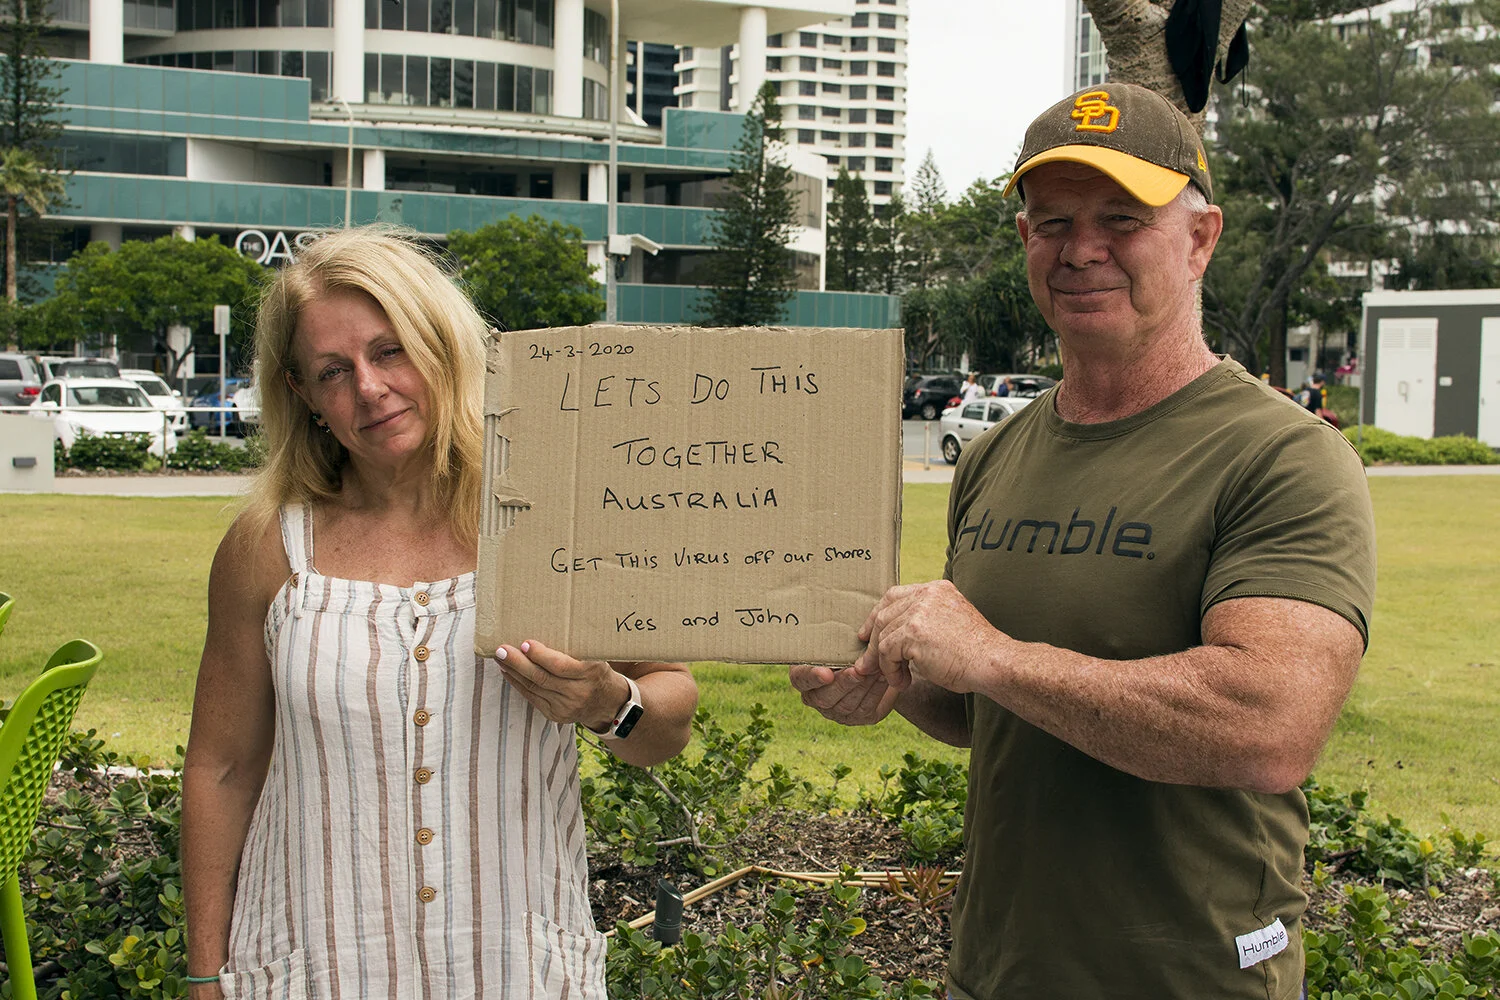 THE OAS
SD
24-3-2020
LETS DO THIS
TOGETHER
AUSTRALIA
GET THIS VIRUS OFF OUR SHORES
Kes and John
Humble.
Humble